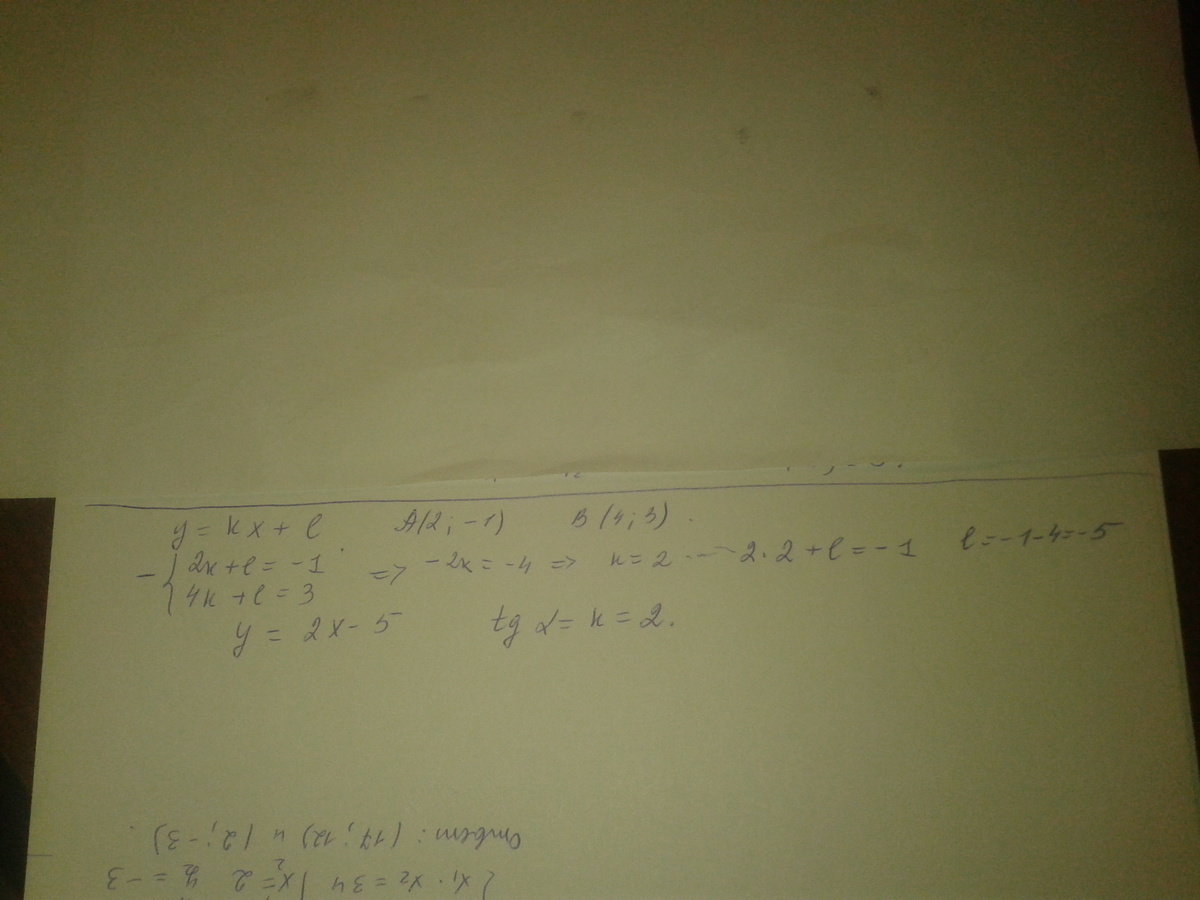 y = kx + l A(2; -1) B(4; 3).
2k + l = -1 => -2x = -4 => k = 2 --- 2·2 + l = -1 l = -1-4 = -5
- {
4k + l = 3
y = 2x - 5 tg α = k = 2.
Ответ: (17; 12) и (2; -3)
x₁·x₂ = 34 x₂ = 2 y₂ = -3